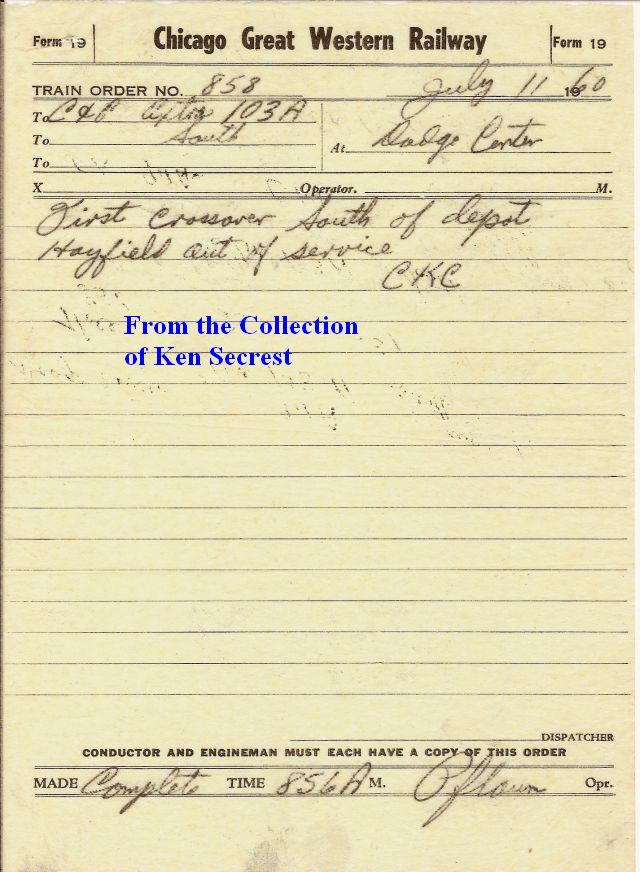 Form 19 Chicago Great Western Railway Form 19
TRAIN ORDER NO. 858 July 11 1960
To C&E Extra 103A
To South At Dodge Center
To
X Operator. M.
First crossover South of depot
Hayfield out of service
CKC
From the Collection
of Ken Secrest
DISPATCHER
CONDUCTOR AND ENGINEMAN MUST EACH HAVE A COPY OF THIS ORDER
MADE Complete TIME 856 A M. Opr.